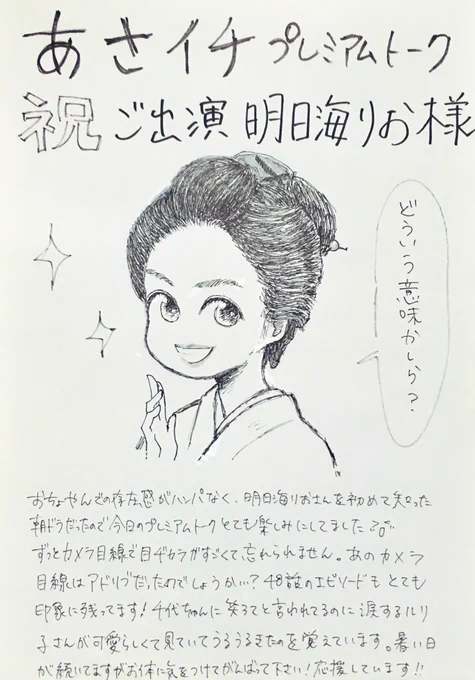 あさイチ プレミアムトーク
祝 ご出演 明日海りお様
どういう意味かしら?
おちょやんでの存在感がハンパなく、明日海りおさんを初めて知った
朝ドラだったので今日のプレミアムトークとても楽しみにしてました
ずっとカメラ目線で目ヂカラがすごくて忘れられません。あのカメラ
目線はアドリブだったのでしょうかい?48話のエピソードもとても
印象に残ってます!千代ちゃんに笑ろてと言われてるのに涙するルリ
子さんが可愛らしくて見ていてうるうるきたのを覚えています。暑い日
が続いてますがお体に気をつけてがんばって下さい!応援しています!!